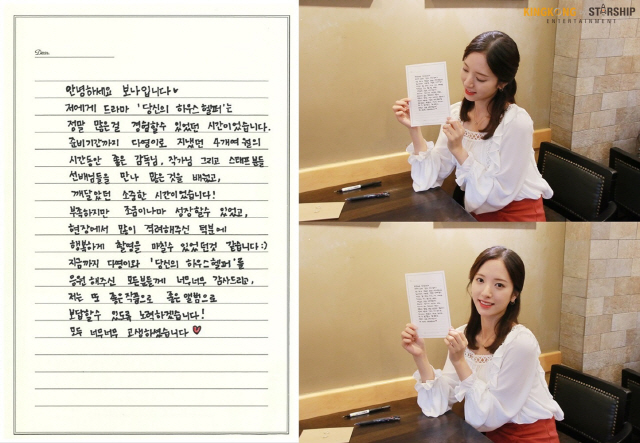 Dear.
안녕하세요 보나입니다♥
저에게 드라마 '당신의 하우스헬퍼'는
정말 많은걸 경험할수 있었던 시간이었습니다.
준비기간까지 다영이로 지냈던 4개여월의
시간동안 좋은 감독님, 작가님 그리고 스태프분들
선배님들을 만나 많은것을 배웠고,
깨달았던 소중한 시간이었습니다!
부족하지만 조금이나마 성장할수 있었고,
현장에서 많이 격려해주신 덕분에
행복하게 촬영을 마칠수 있었던것 같습니다:)
지금까지 다영이와 '당신의 하우스헬퍼'를
응원해주신 모든분들께 너무너무 감사드리고,
저는 또 좋은작품으로 좋은 앨범으로
보답할수 있도록 노력하겠습니다!
모두 너무너무 고생하셨습니다♥
KINGKONG by STARSHIP
ENTERTAINMENT